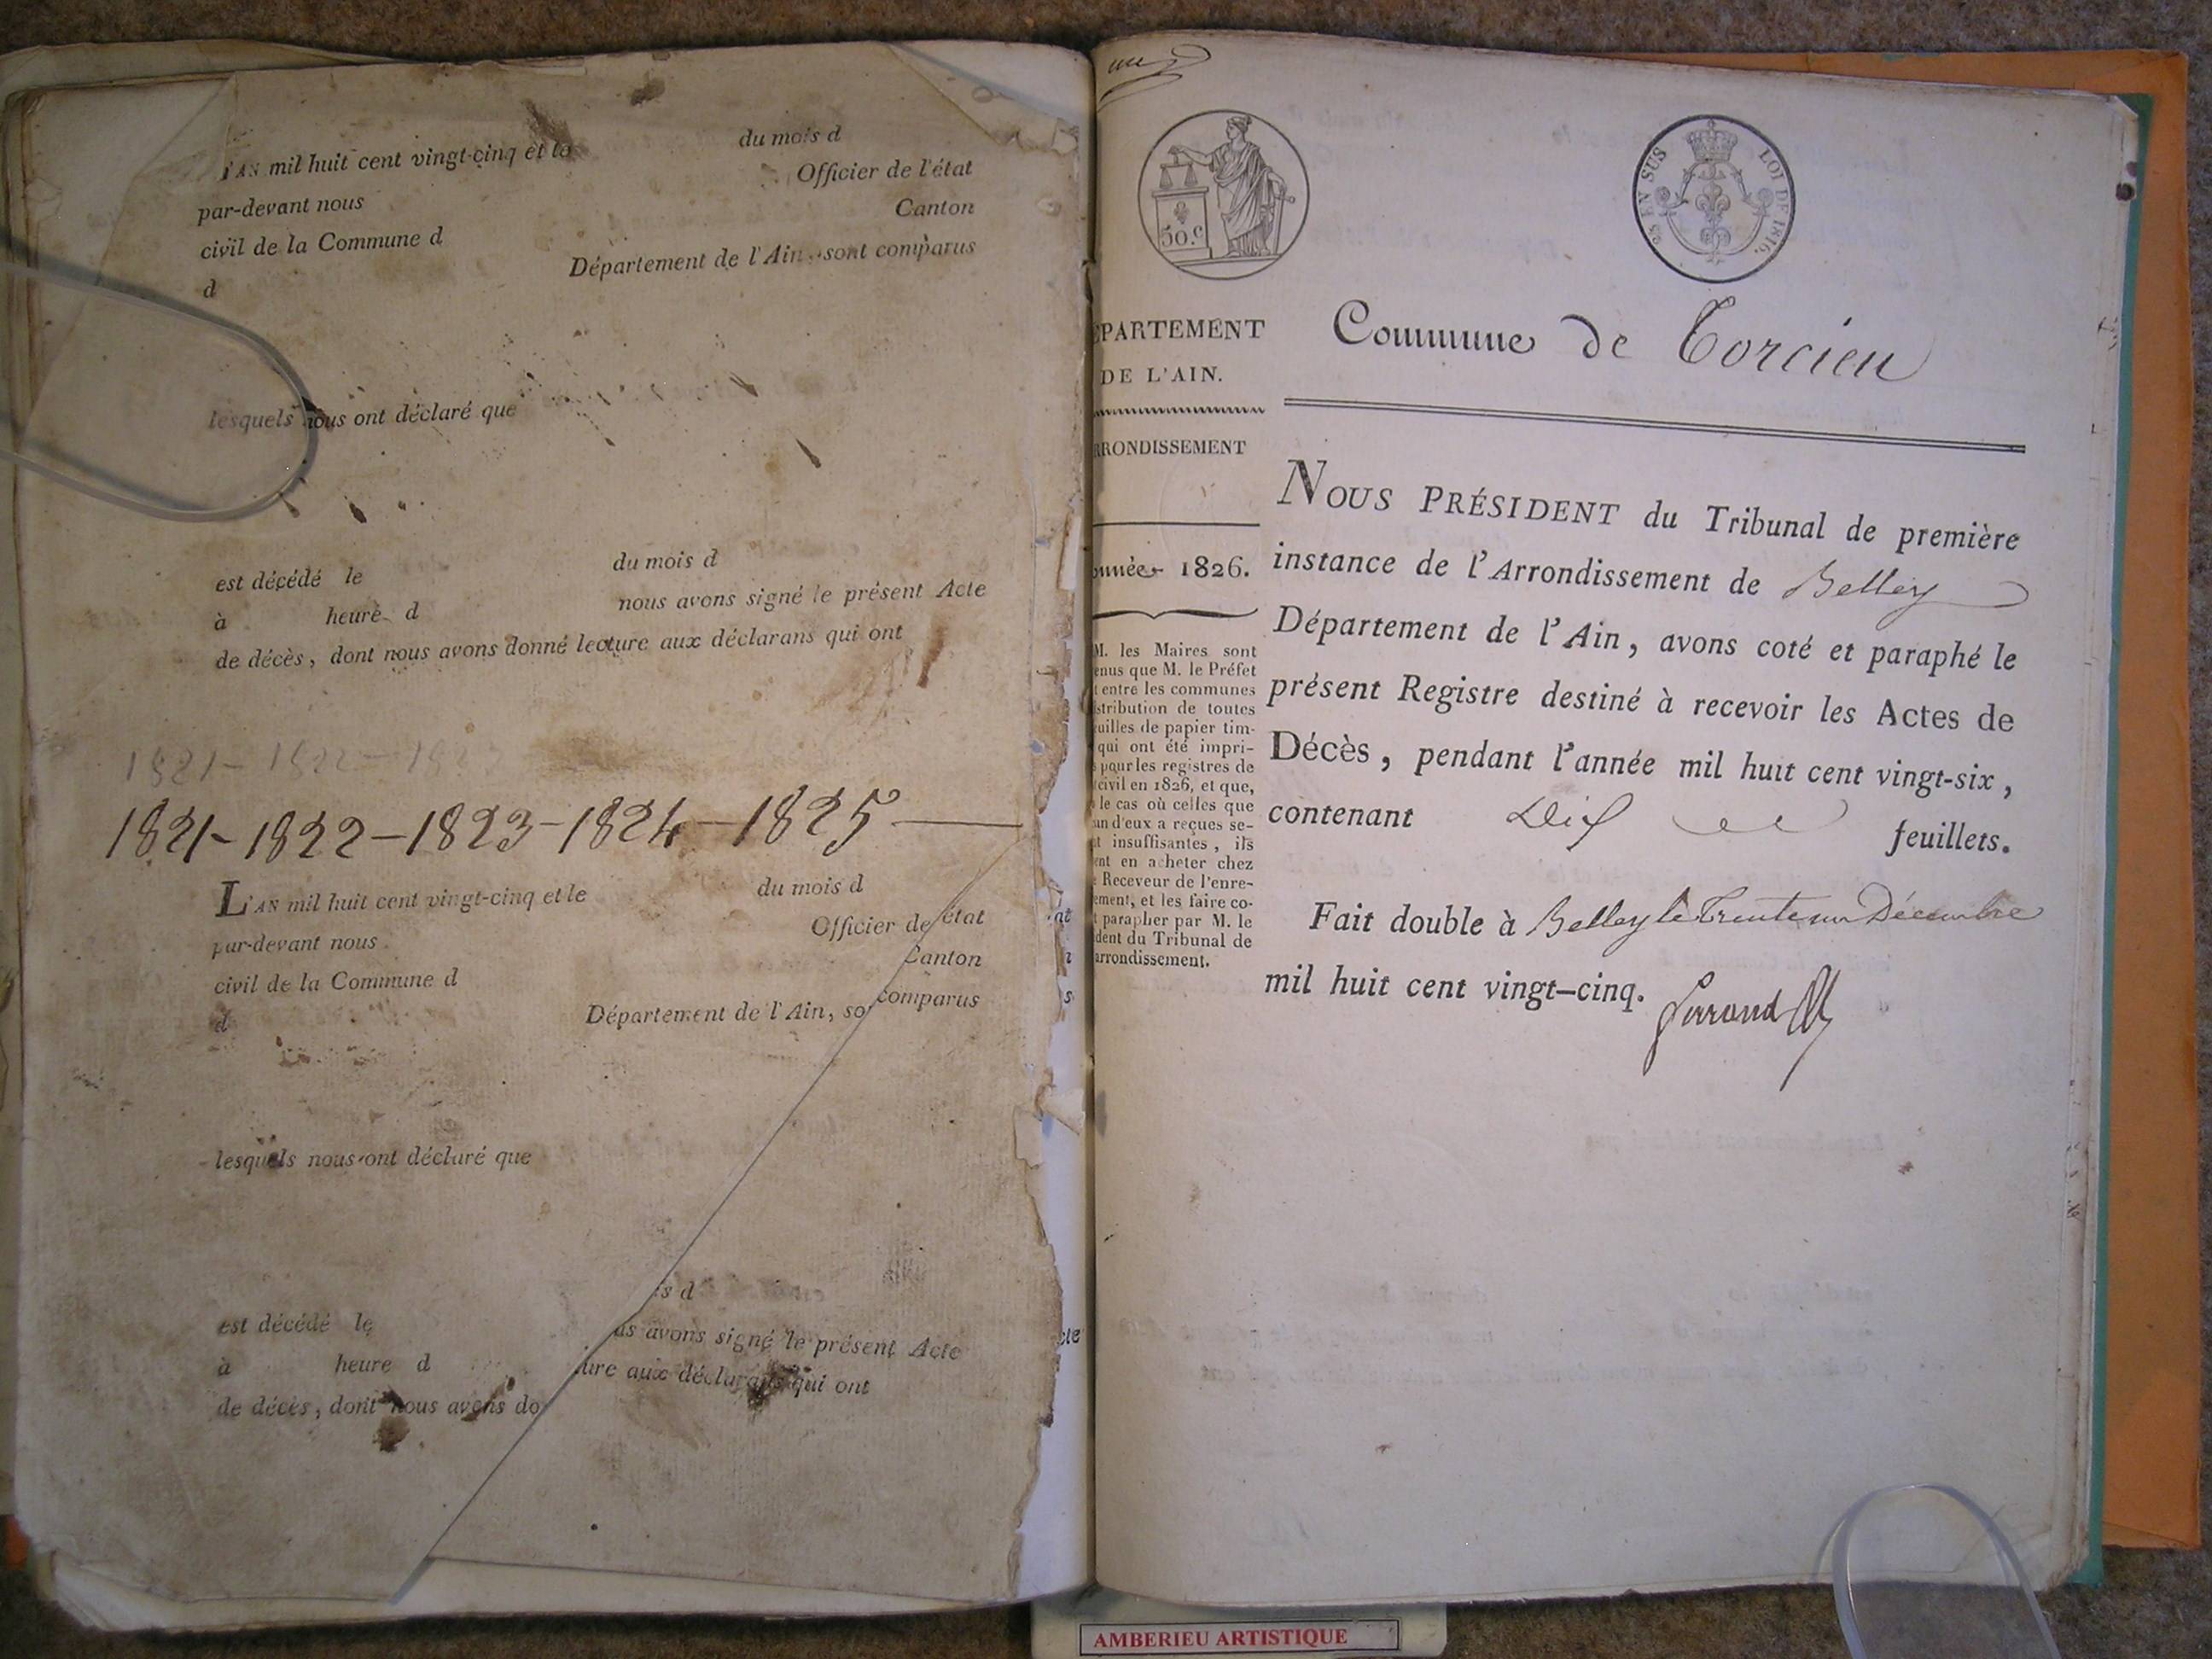 L'AN mil huit cent vingt-cinq et le du mois d
par-devant nous Officier de l'état
civil de la Commune d Canton
d Département de l'Ain, sont comparus
lesquels nous ont déclaré que
est décédé le du mois d
à heure d nous avons signé le présent Acte
de décès, dont nous avons donné lecture aux déclarans qui ont
1821 - 1822 - 182
1821 - 1822 - 1823 - 1824 - 1825
L'AN mil huit cent vingt-cinq et le du mois d
par-devant nous Officier de état
civil de la Commune d Canton
d Département de l'Ain, so comparus
lesquels nous ont déclaré que
est décédé le s d
à heure d us avons signé le présent Acte
de décès, dont nous avons do ure aux déclarans qui ont
50.c
25 EN SUS LOI DE 1816.
EPARTEMENT
DE L'AIN.
RRONDISSEMENT
nnée 1826.
M. les Maires sont
enus que M. le Préfet
t entre les communes
stribution de toutes
uilles de papier tim-
qui ont été impri-
pour les registres de
civil en 1826, et que,
le cas où celles que
un d'eux a reçues se-
t insuffisantes, ils
ent en acheter chez
Receveur de l'enre-
ement, et les faire co-
t parapher par M. le
ident du Tribunal de
arrondissement.
Commune de Torcieu
NOUS PRÉSIDENT du Tribunal de première
instance de l'Arrondissement de Belley
Département de l'Ain, avons coté et paraphé le
présent Registre destiné à recevoir les Actes de
Décès, pendant l'année mil huit cent vingt-six,
contenant Dix feuillets.
Fait double à Belley le Trente un Décembre
mil huit cent vingt-cinq.
AMBERIEU ARTISTIQUE